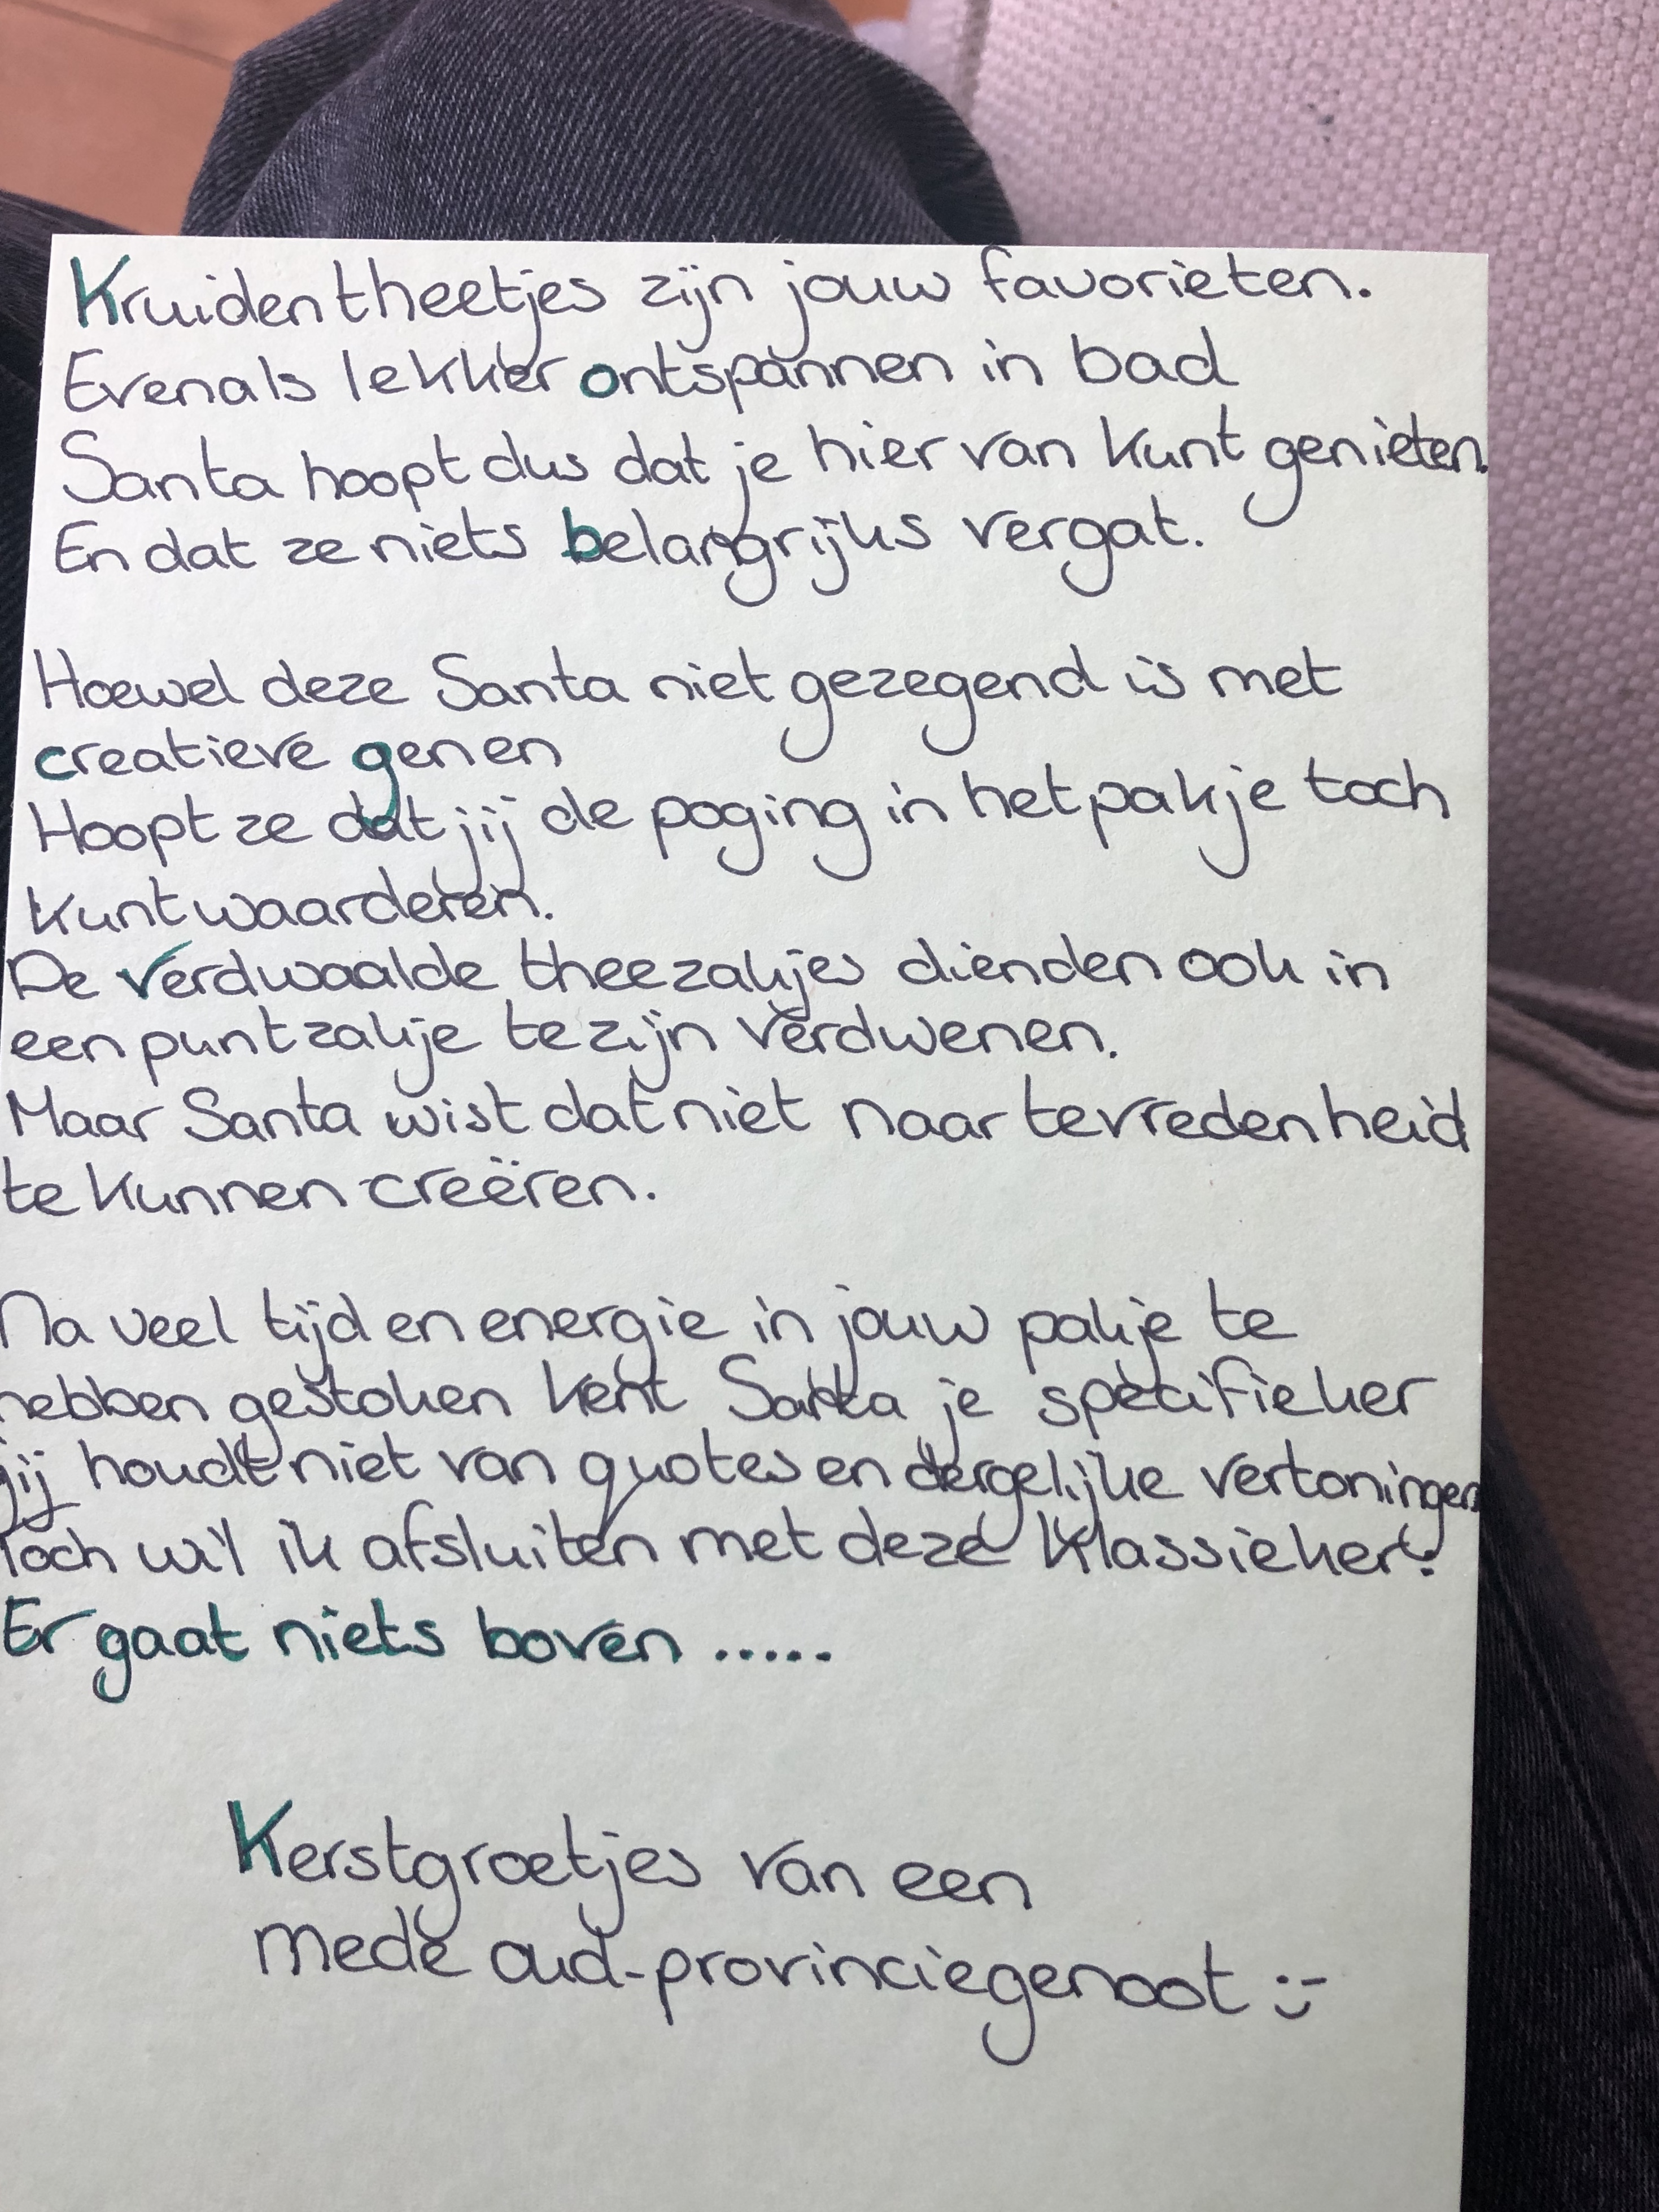 Kruidentheetjes zijn jouw favorieten.
Evenals lekker ontspannen in bad
Santa hoopt dus dat je hier van kunt genieten.
En dat ze niets belangrijks vergat.
Hoewel deze Santa niet gezegend is met
creatieve genen
Hoopt ze dat jij de poging in het pakje toch
kunt waarderen.
De verdwaalde theezakjes dienden ook in
een puntzakje te zijn verdwenen.
Maar Santa wist dat niet naar tevredenheid
te kunnen creëren.
Na veel tijd en energie in jouw pakje te
hebben gestoken kent Santa je specifieker
jij houdt niet van quotes en dergelijke vertoningen
Toch wil ik afsluiten met deze klassieker:
Er gaat niets boven .....
Kerstgroetjes van een
mede oud-provinciegenoot :-)